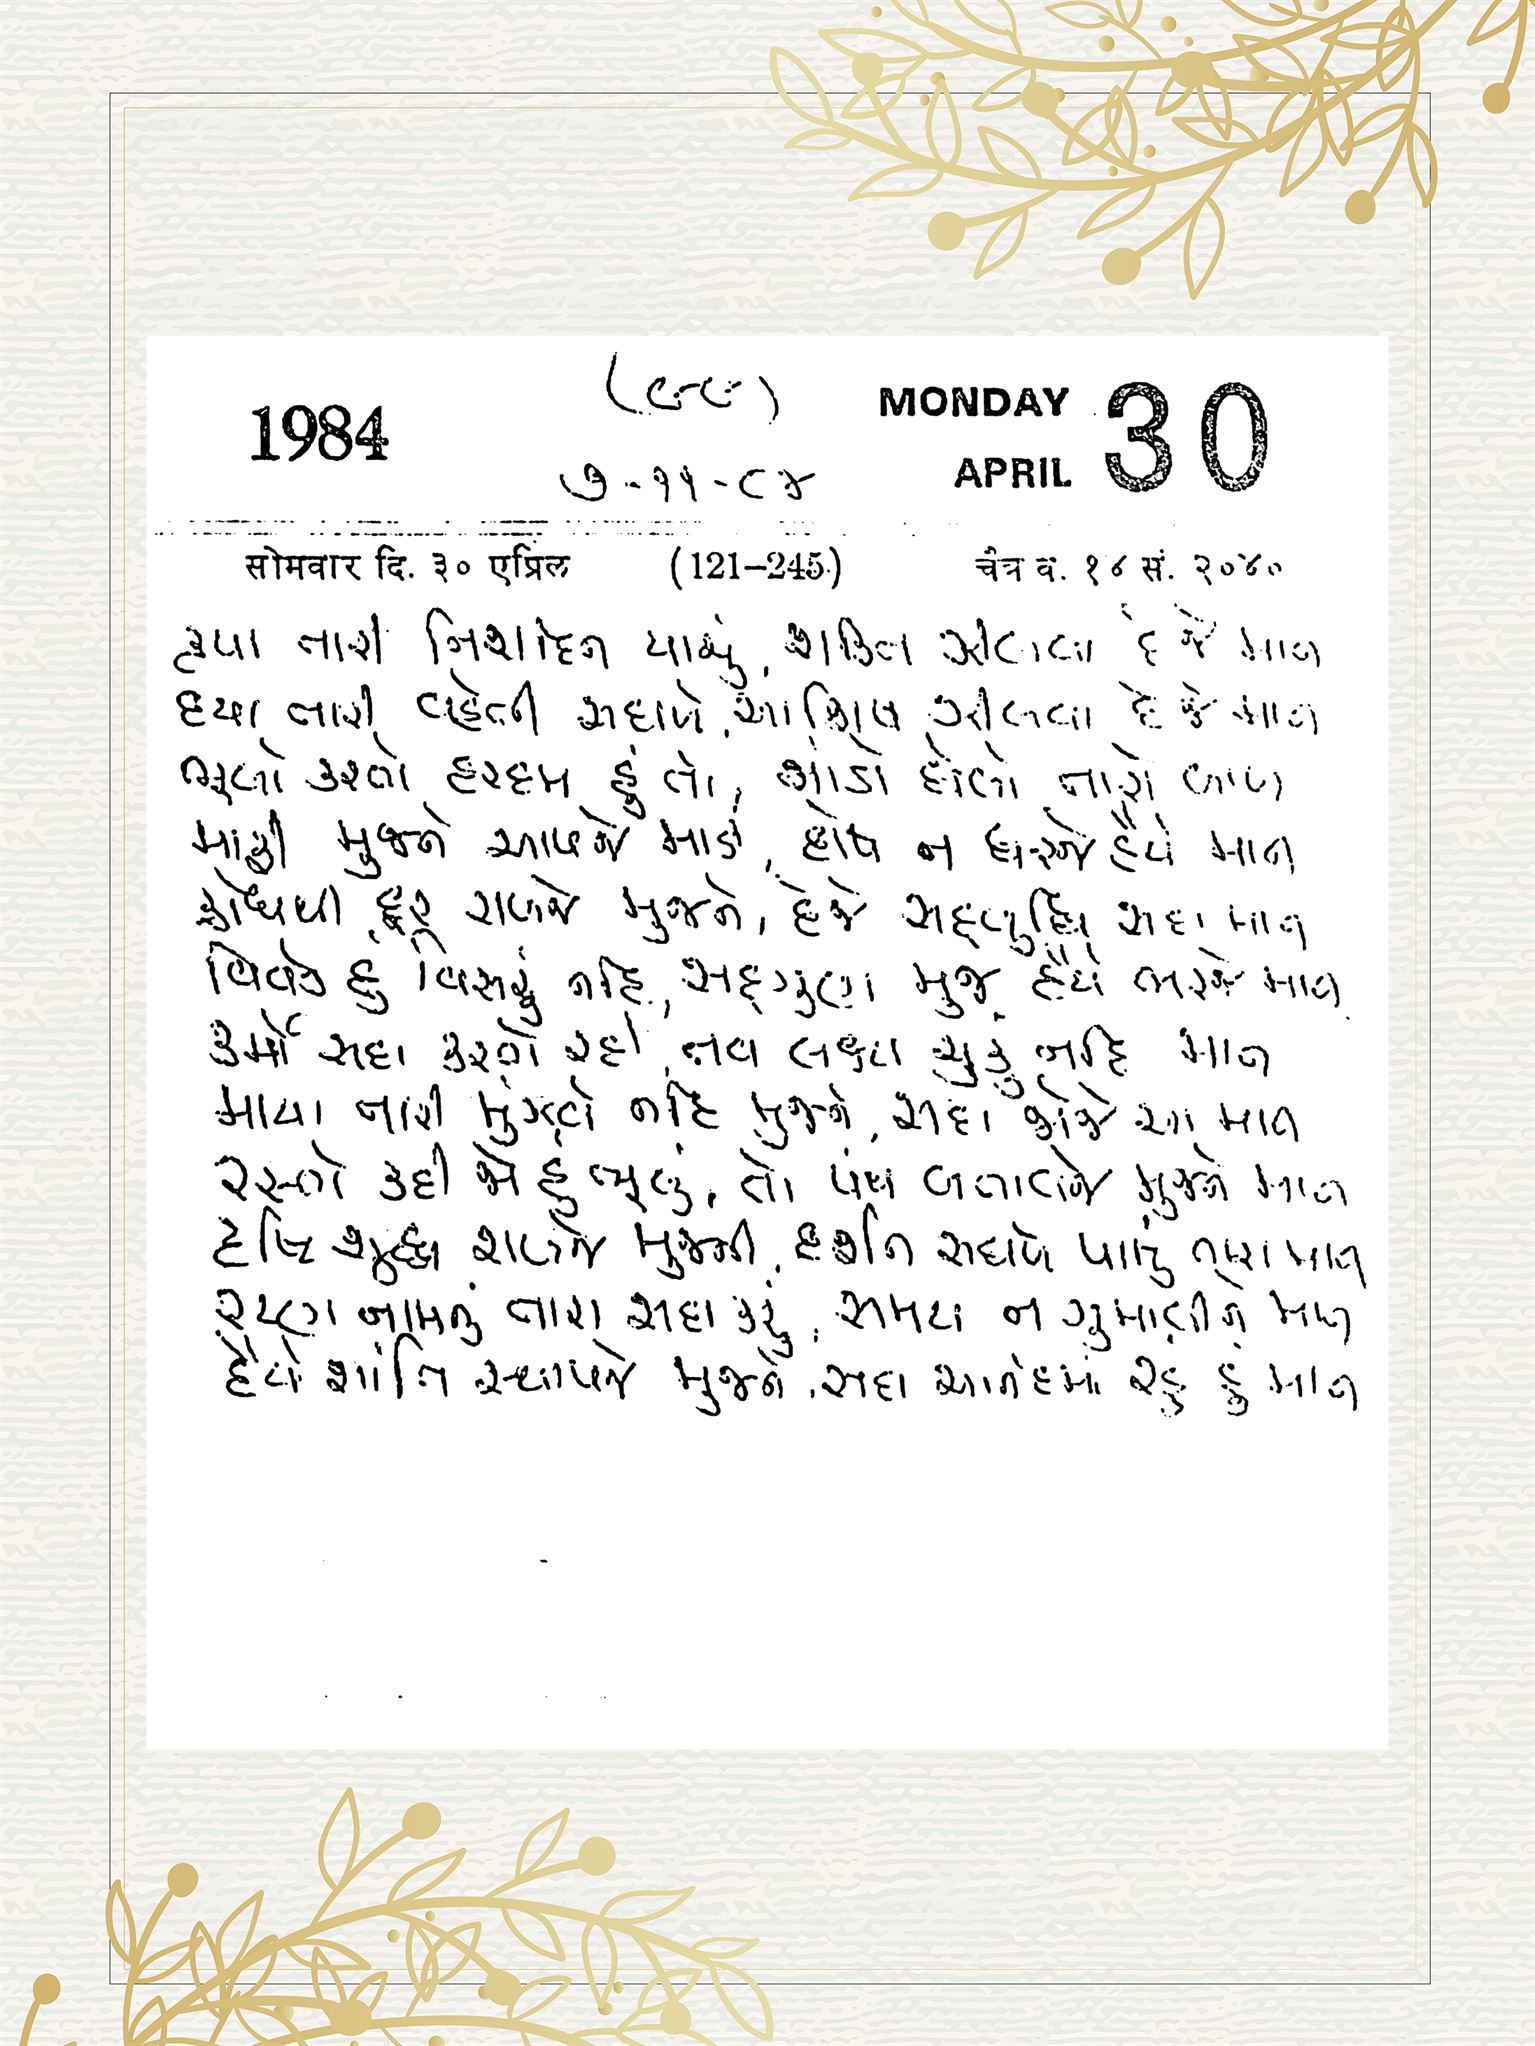 1984
(૯૯)
MONDAY 30
APRIL
૭-૧૧-૮૪
सोमवार दि. ३० एप्रिल (121-245) चैत्र व. १४ सं. २०४०
કૃપા તારી નિશદિન યાચું, શક્તિ ઝીલવા દેજે માત
દયા તારી વહેતી સદાયે, આશિષ ઝીલવા દેજે માત
ભૂલો કરતો હરદમ હું તો, ગાંડો ઘેલો તારો બાળ
માફી મુજને આપજે માડી, દોષ ન ધરજે હૈયે માત
ક્રોધથી દૂર રાખજે મુજને, દેજે સદ્બુદ્ધિ સદા માત
વિવેક હું વિસરું નહિ, સદ્ગુણ મુજ હૈયે ભરજે માત
કર્મો સદા કરતો રહી, તવ લક્ષ્ય ચુકું નહિ માત
માયા તારી મુંઝવે નહિ મુજને, સદા જોજે આ માત
રસ્તો કદી જો હું ભૂલું, તો પંથ બતાવજે મુજને માત
દૃષ્ટિ શુદ્ધ રાખજે મુજની, દર્શન સદાયે પામું તારા માત
રટણ નામનું તારા સદા કરું, સમય ન ગુમાવીને માત
હૈયે શાંતિ સ્થાપજે મુજને, સદા આનંદમાં રહું હું માત